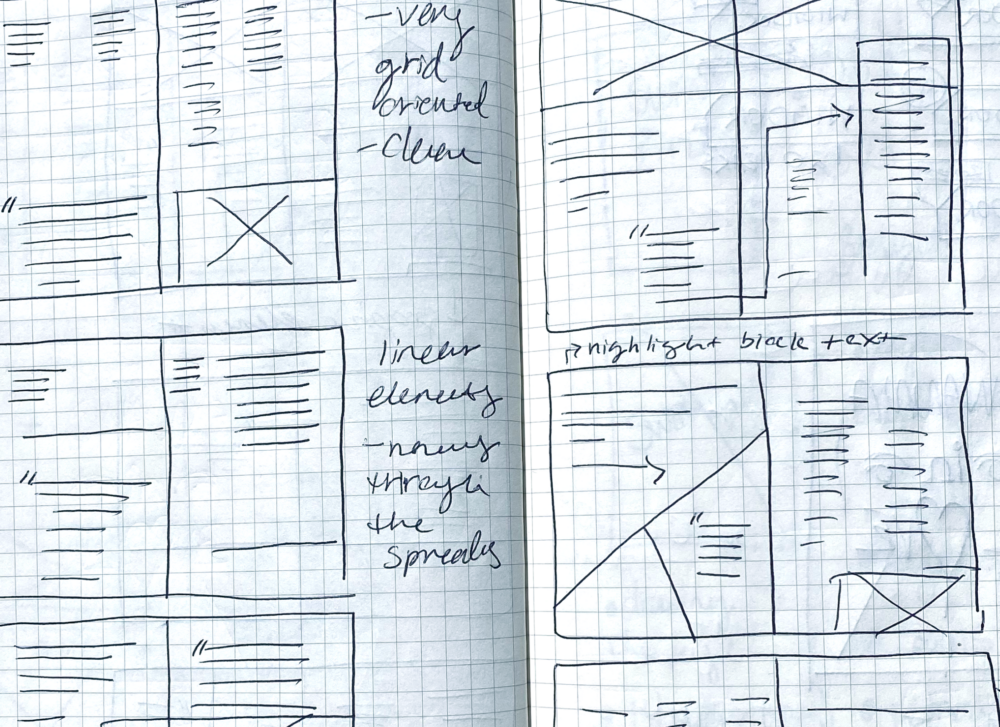 -very
grid
oriented
-Clean
linear
elements
through
the
spreads
highlight block text